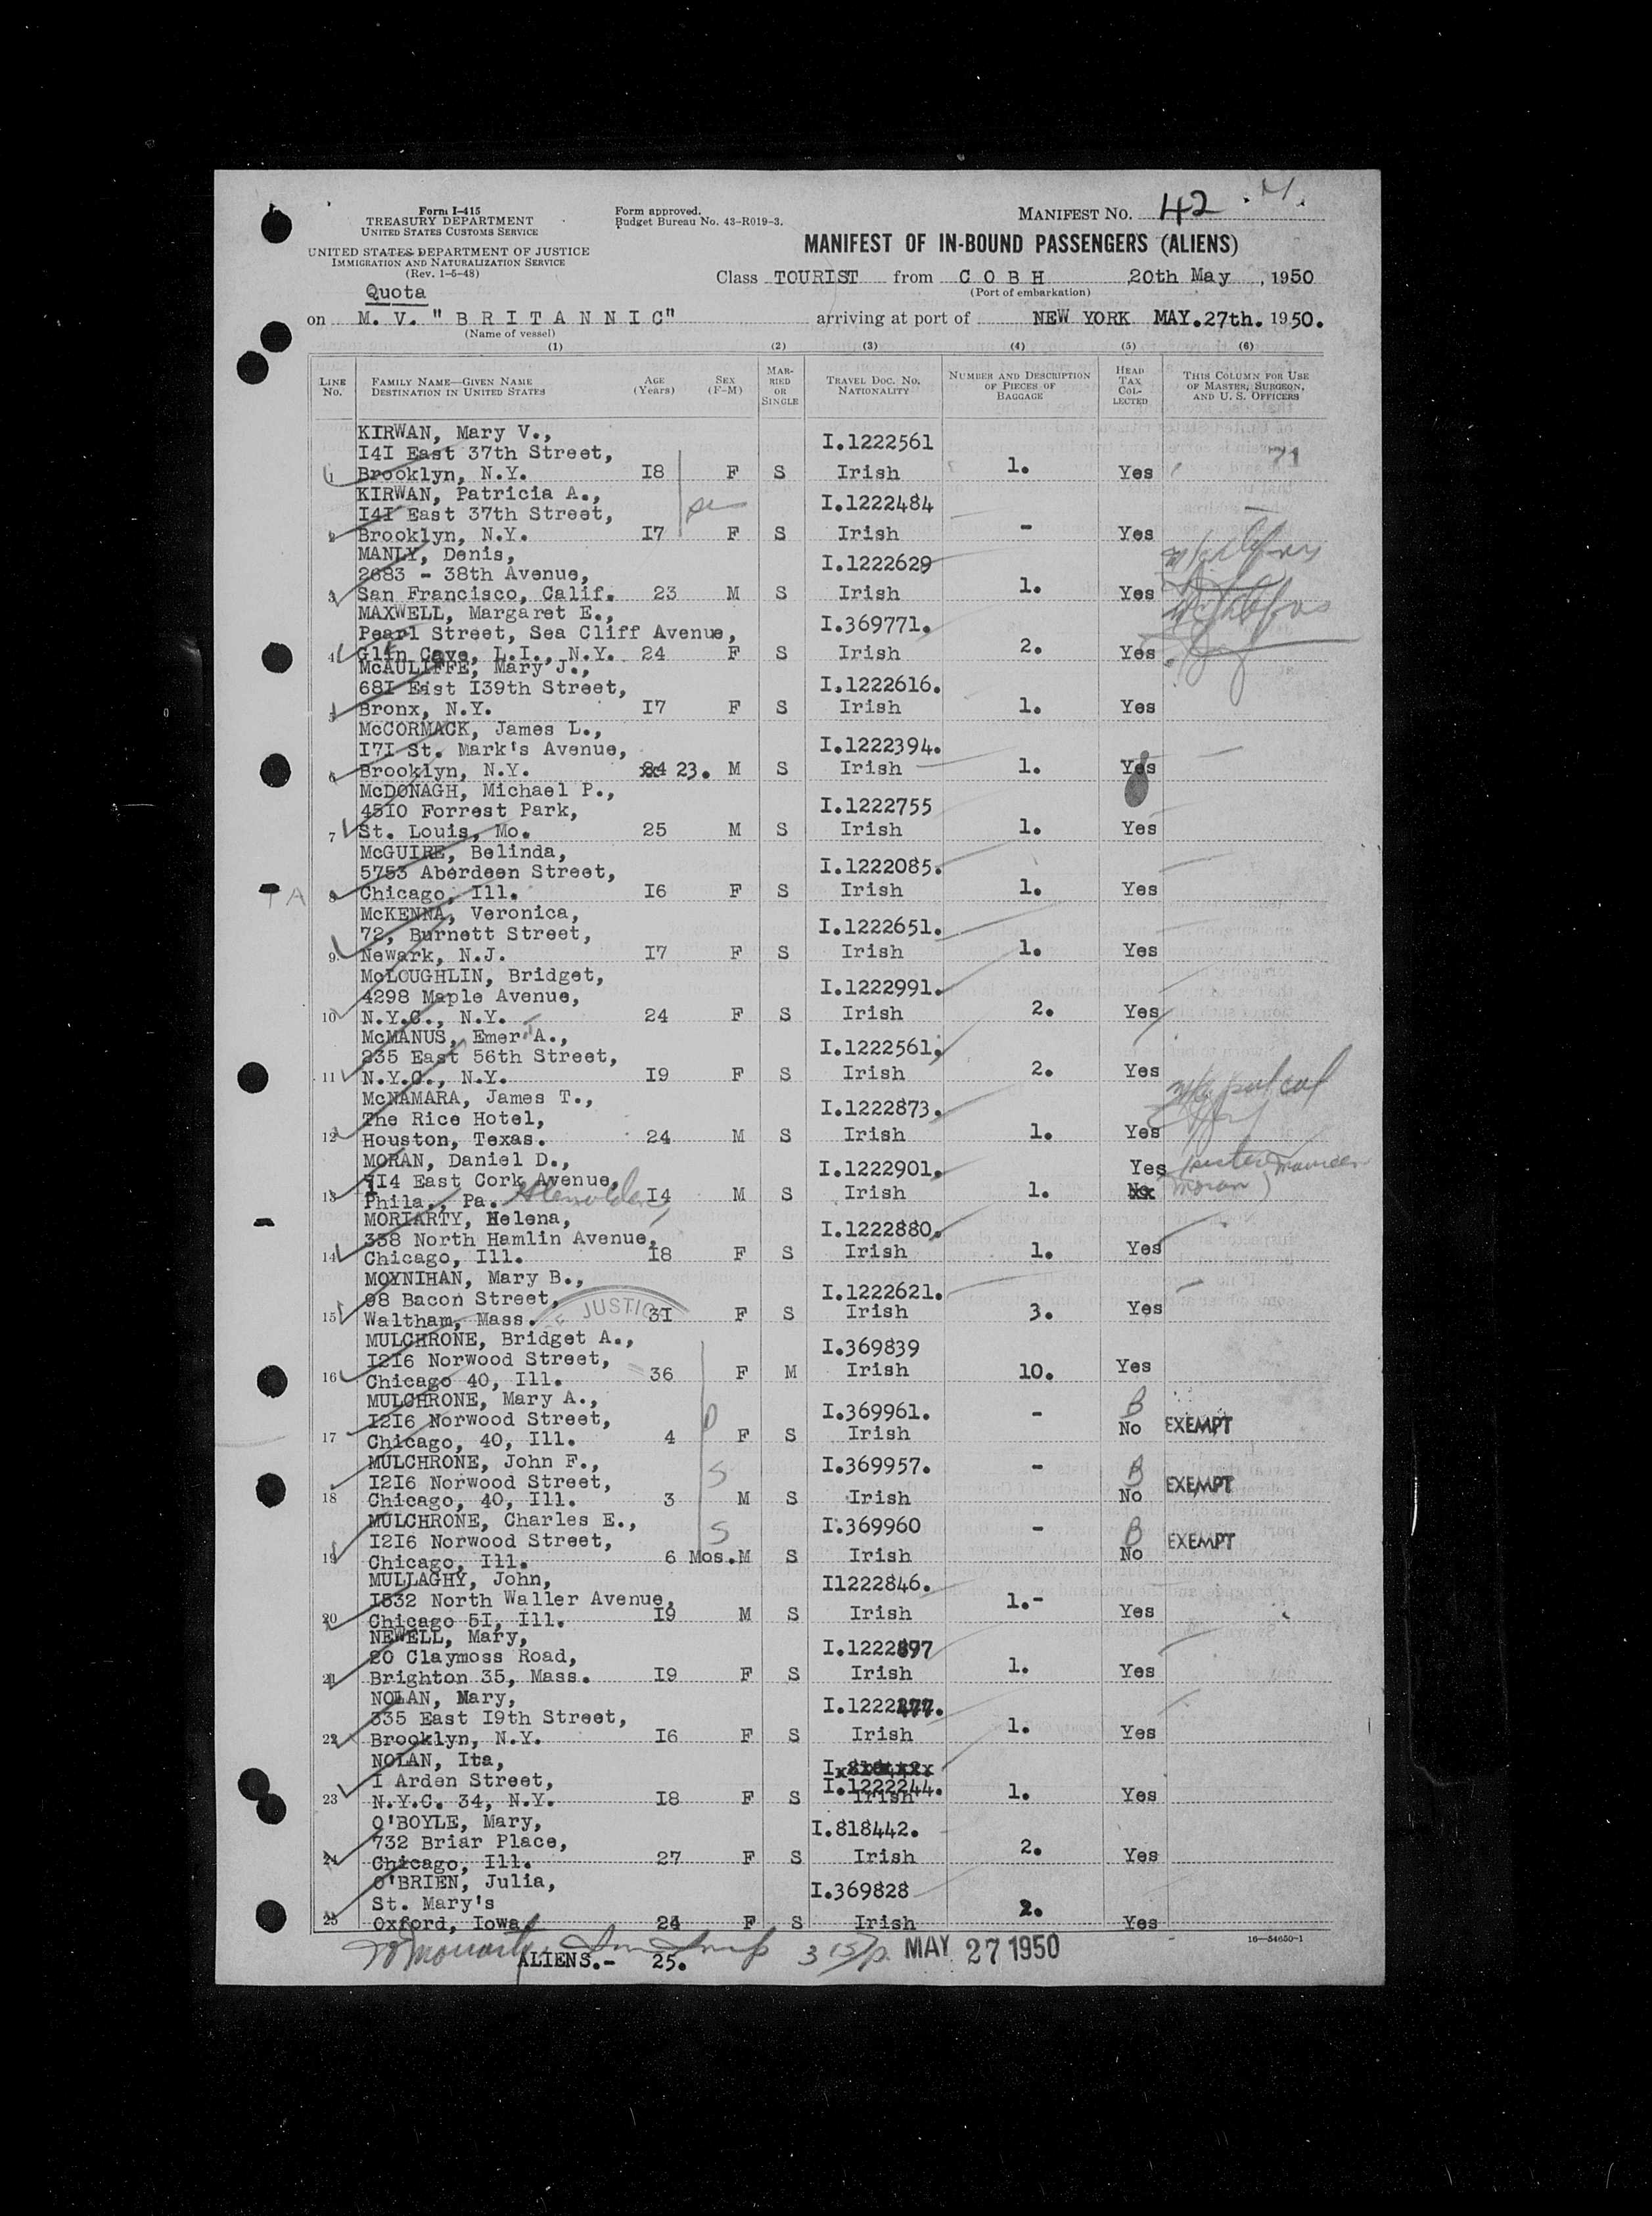 Form I-415
TREASURY DEPARTMENT
UNITED STATES CUSTOMS SERVICE
UNITED STATES DEPARTMENT OF JUSTICE
IMMIGRATION AND NATURALIZATION SERVICE
(Rev. 1-5-48)
Form approved.
Budget Bureau No. 43-R019-3.
MANIFEST NO. 42
MANIFEST OF IN-BOUND PASSENGERS (ALIENS)
Class TOURIST from C O B H 20th May, 1950
(Port of embarkation)
Quota
on M. V. "B R I T A N N I C" arriving at port of NEW YORK MAY.27th. 1950.
(Name of vessel)
(1) (2) (3) (4) (5) (6)
LINE No. FAMILY NAME—GIVEN NAME DESTINATION IN UNITED STATES AGE (Years) SEX (F-M) MARRIED OR SINGLE TRAVEL DOC. NO. NATIONALITY NUMBER AND DESCRIPTION OF PIECES OF BAGGAGE HEAD TAX COLLECTED THIS COLUMN FOR USE OF MASTER, SURGEON, AND U. S. OFFICERS
KIRWAN, Mary V., I.1222561
I4I East 37th Street,
1 Brooklyn, N.Y. I8 F S Irish 1. Yes 71
KIRWAN, Patricia A., I.1222484
I4I East 37th Street,
2 Brooklyn, N.Y. I7 F S Irish - Yes
MANLY, Denis, I.1222629
2683 - 38th Avenue,
3 San Francisco, Calif. 23 M S Irish 1. Yes
MAXWELL, Margaret E., I.369771.
Pearl Street, Sea Cliff Avenue,
4 Glen Cove, L.I., N.Y. 24 F S Irish 2. Yes
McAULIFFE, Mary J.,
68I East I39th Street, I.1222616.
5 Bronx, N.Y. I7 F S Irish 1. Yes
McCORMACK, James L.,
I7I St. Mark's Avenue, I.1222394.
6 Brooklyn, N.Y. 24 23. M S Irish 1. Yes
McDONAGH, Michael P.,
45I0 Forrest Park, I.1222755
7 St. Louis, Mo. 25 M S Irish 1. Yes
McGUIRE, Belinda,
5753 Aberdeen Street, I.1222085.
8 Chicago, Ill. I6 F S Irish 1. Yes
McKENNA, Veronica,
72, Burnett Street, I.1222651.
9 Newark, N.J. I7 F S Irish 1. Yes
McLOUGHLIN, Bridget,
4298 Maple Avenue, I.1222991.
10 N.Y.C., N.Y. 24 F S Irish 2. Yes
McMANUS, Emer A.,
235 East 56th Street, I.1222561.
11 N.Y.C., N.Y. I9 F S Irish 2. Yes
McNAMARA, James T.,
The Rice Hotel, I.1222873.
12 Houston, Texas. 24 M S Irish 1. Yes
MORAN, Daniel D., I.1222901. Yes (sister Maureen
114 East Cork Avenue,
13 Phila., Pa. Glenolden I4 M S Irish 1. No Moran)
MORIARTY, Helena,
338 North Hamlin Avenue, I.1222880.
14 Chicago, Ill. I8 F S Irish 1. Yes
MOYNIHAN, Mary B.,
98 Bacon Street, I.1222621.
15 Waltham, Mass. 3I F S Irish 3. Yes
JUSTICE
MULCHRONE, Bridget A., I.369839
I2I6 Norwood Street,
16 Chicago 40, Ill. 36 F M Irish 10. Yes
MULCHRONE, Mary A., I.369961. B
I2I6 Norwood Street,
17 Chicago, 40, Ill. 4 F S Irish - No EXEMPT
MULCHRONE, John F., I.369957. B
I2I6 Norwood Street,
18 Chicago, 40, Ill. 3 M S Irish - No EXEMPT
MULCHRONE, Charles E., I.369960 B
I2I6 Norwood Street,
19 Chicago, Ill. 6 Mos. M S Irish - No EXEMPT
MULLAGHY, John, I1222846.
I532 North Waller Avenue,
20 Chicago 5I, Ill. I9 M S Irish 1.- Yes
NEWELL, Mary, I.1222897
20 Claymoss Road,
21 Brighton 35, Mass. I9 F S Irish 1. Yes
NOLAN, Mary, I.1222
335 East I9th Street,
22 Brooklyn, N.Y. I6 F S Irish 1. Yes
NOLAN, Ita,
I Arden Street, I.1222244.
23 N.Y.C. 34, N.Y. I8 F S Irish 1. Yes
O'BOYLE, Mary, I.818442.
732 Briar Place,
24 Chicago, Ill. 27 F S Irish 2. Yes
O'BRIEN, Julia, I.369828
St. Mary's
25 Oxford, Iowa. 24 F S Irish 2. Yes
16—54650-1
ALIENS.- 25. MAY 27 1950